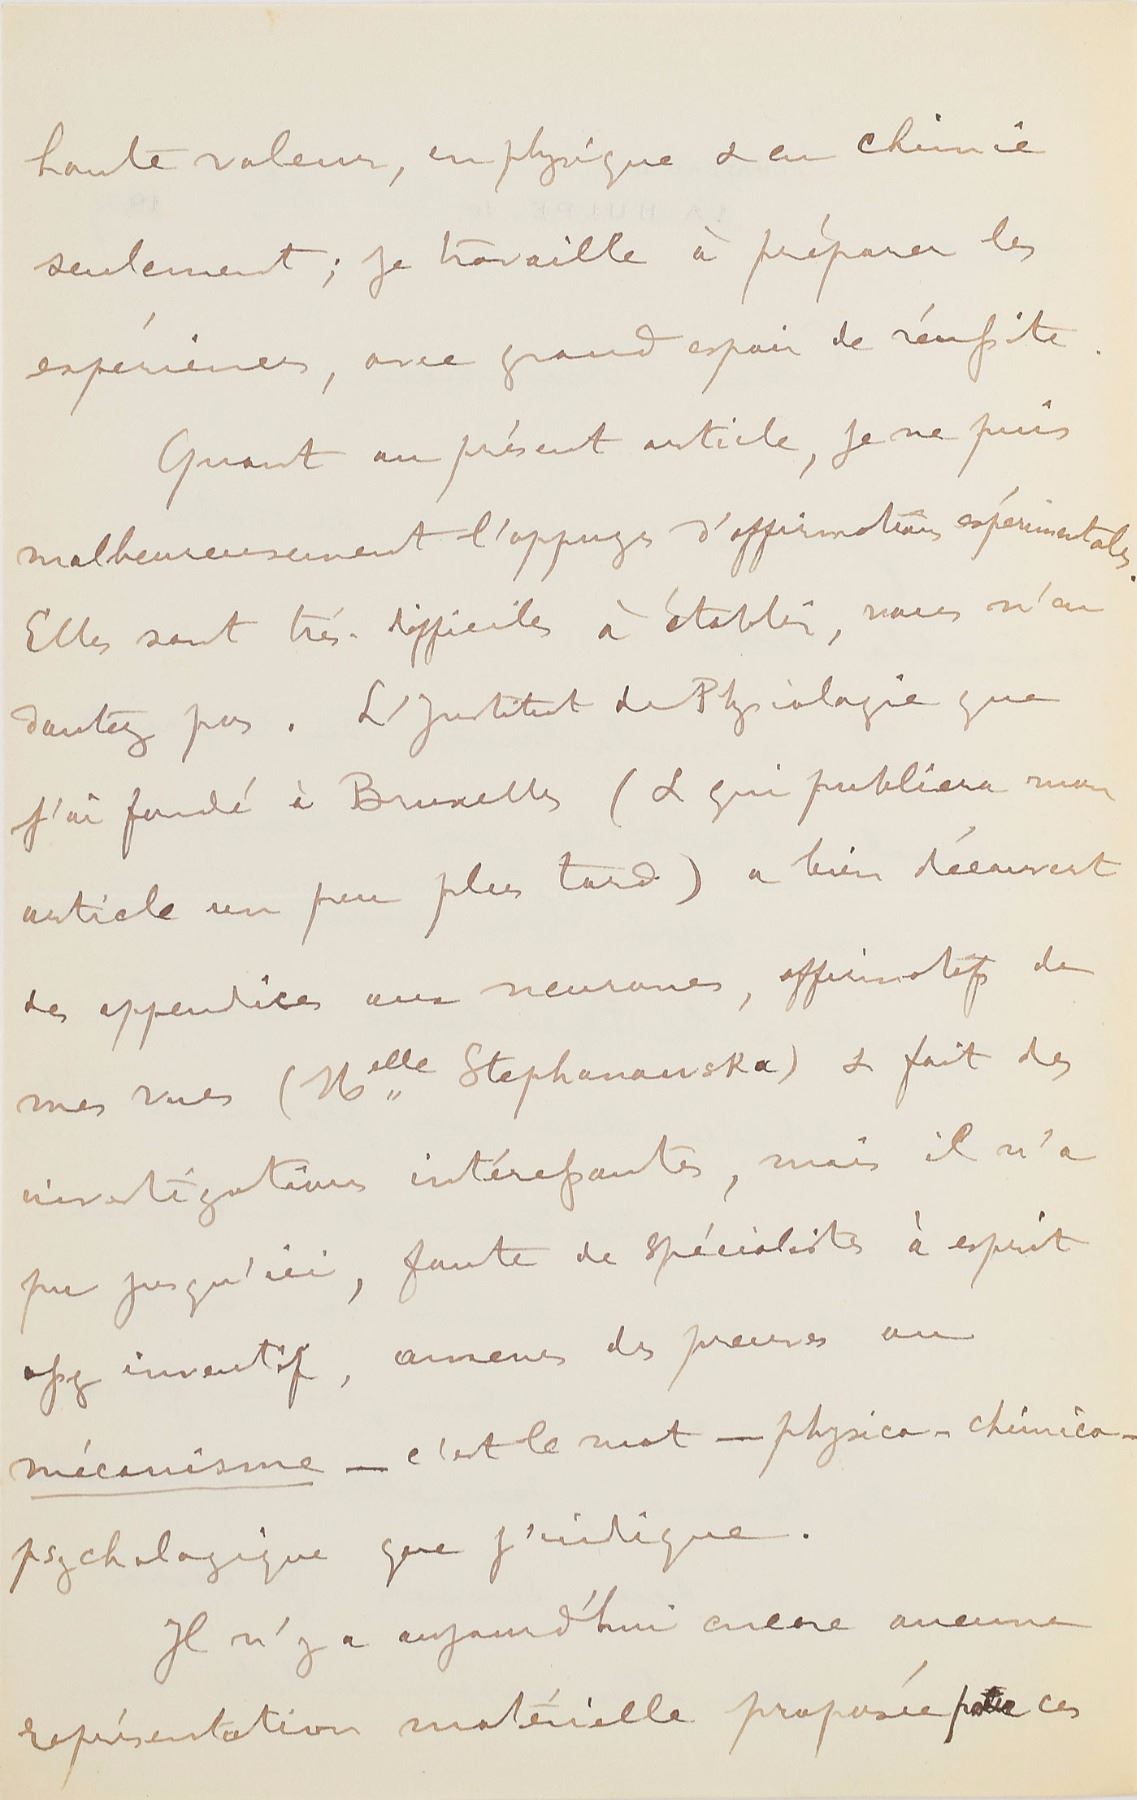 haute valeur, en physique & en chimie
seulement ; je travaille à préparer les
expériences, avec grand espoir de réussite.
Quant au présent article, je ne puis
malheureusement l'appuyer d'affirmations expérimentales.
Elles sont très difficiles à établir, vous n'en
doutez pas. L'Institut de Physiologie que
j'ai fondé à Bruxelles (& qui publiera mon
article un peu plus tard) a bien découvert
des appendices aux neurones, affirmatifs de
mes vues (Melle Stephanowska) & fait des
investigations intéressantes, mais il n'a
pu jusqu'ici, faute de spécialistes à esprit
assez inventif, amener des preuves au
mécanisme — c'est le mot — physico-chimico-
psychologique que j'indique.
Il n'y a aujourd'hui encore aucune
représentation matérielle proposée pour ces